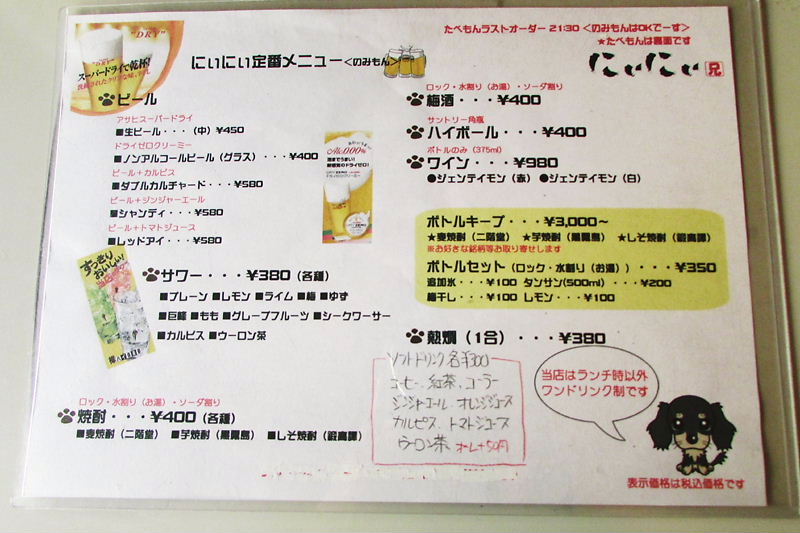 たべもんラストオーダー 21:30 <のみもんはOKでーす>
★たべもんは裏面です
"DRY"
スーパードライで乾杯!
にぃにぃ定番メニュー<のみもん>
にぃにぃ 兄
ビール
アサヒスーパードライ
■生ビール・・・(中)¥450
ドライゼロクリーミー
■ノンアルコールビール(グラス)・・・¥400
ビール+カルピス
■ダブルカルチャード・・・¥580
ビール+ジンジャーエール
■シャンディ・・・¥580
ビール+トマトジュース
■レッドアイ・・・¥580
Alc.0.00%
すっきりおいしい!
サワー・・・¥380(各種)
■プレーン ■レモン ■ライム ■梅 ■ゆず
■巨峰 ■もも ■グレープフルーツ ■シークワーサー
■カルピス ■ウーロン茶
ロック・水割り(お湯)・ソーダ割り
焼酎・・・¥400(各種)
■麦焼酎(二階堂) ■芋焼酎(黒霧島) ■しそ焼酎(鍛高譚)
ロック・水割り(お湯)・ソーダ割り
梅酒・・・¥400
サントリー角瓶
ハイボール・・・¥400
ボトルのみ(375ml)
ワイン・・・¥980
●ジェンテイモン(赤) ●ジェンテイモン(白)
ボトルキープ・・・¥3,000~
★麦焼酎(二階堂) ★芋焼酎(黒霧島) ★しそ焼酎(鍛高譚)
※お好きな銘柄等お取り寄せします
ボトルセット(ロック・水割り(お湯))・・・¥350
追加氷・・・¥100 タンサン(500ml)・・・¥200
梅干し・・・¥100 レモン・・・¥100
熱燗(1合)・・・¥380
ソフトドリンク 各¥300
コーヒー、紅茶、コーラー
ジンジャエール オレンジジュース
カルピス トマトジュース
ウーロン茶 ホームナ50円
当店はランチ時以外
ワンドリンク制です
表示価格は税込価格です